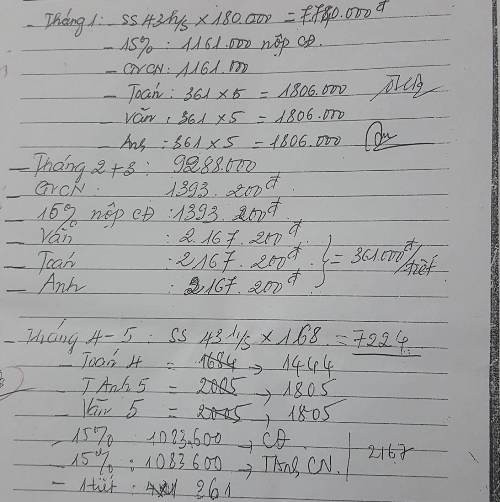 - Tháng 1: SS 43 h/s × 180.000 = 7740.000đ
- 15% : 1161.000 nộp CĐ.
- GVCN : 1161.000
- Toán : 361 × 5 = 1806.000
- Văn : 361 × 5 = 1806.000
- Anh : 361 × 5 = 1806.000
- Tháng 2+3 : 9288.000
- GVCN : 1393.200đ
- 15% nộp CĐ : 1393.200đ
- Văn : 2.167.200đ
- Toán : 2,167.200đ } = 361.000đ/tiết
- Anh : 2,167.200đ
- Tháng 4-5 : SS 43 h/s × 168 = 7224
- Toán 4 = 1684 → 1444
- T Anh 5 = 2005 → 1805
- Văn 5 = 2005 → 1805
- 15% : 1083.600 → CĐ
- 15% : 1083600 → Thanh CN. | 2167
- 1 tiết : 361